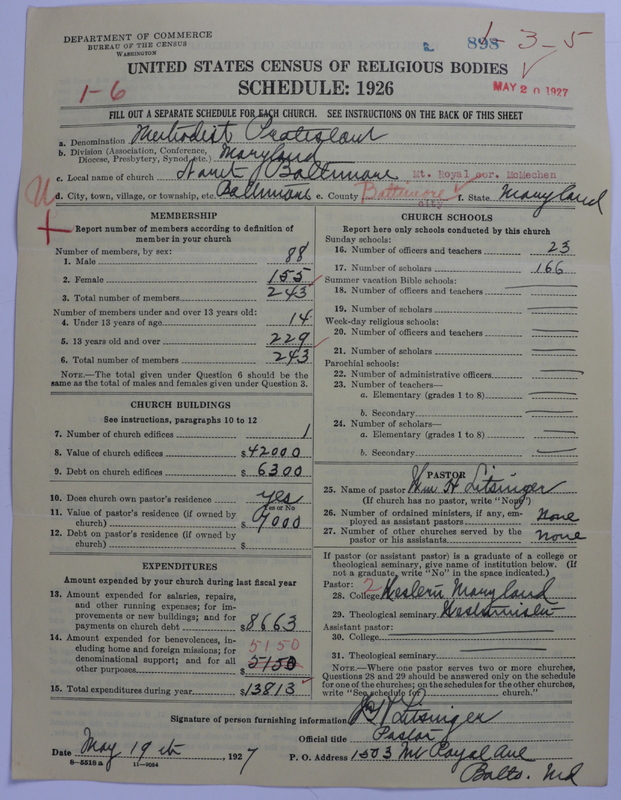 DEPARTMENT OF COMMERCE
BUREAU OF THE CENSUS
WASHINGTON
898 1-3-5
UNITED STATES CENSUS OF RELIGIOUS BODIES
1-6
SCHEDULE: 1926
MAY 20 1927
FILL OUT A SEPARATE SCHEDULE FOR EACH CHURCH. SEE INSTRUCTIONS ON THE BACK OF THIS SHEET
a. Denomination Methodist Protestant
b. Division (Association, Conference, Diocese, Presbytery, Synod, etc.) Maryland
c. Local name of church Baltimore Mt. Royal cor. McMechen
U d. City, town, village, or township, etc. Baltimore e. County Baltimore city f. State Maryland
MEMBERSHIP
Report number of members according to definition of member in your church
Number of members, by sex:
1. Male 88
2. Female 155
3. Total number of members 243
Number of members under and over 13 years old:
4. Under 13 years of age 14
5. 13 years old and over 229
6. Total number of members 243
NOTE.—The total given under Question 6 should be the
same as the total of males and females given under Question 3.
CHURCH BUILDINGS
See instructions, paragraphs 10 to 12
7. Number of church edifices 1
8. Value of church edifices $42000
9. Debt on church edifices $6300
10. Does church own pastor's residence yes
Yes or No
11. Value of pastor's residence (if owned by
church) $7000
12. Debt on pastor's residence (if owned by
church) $
EXPENDITURES
Amount expended by your church during last fiscal year
13. Amount expended for salaries, repairs,
and other running expenses; for im-
provements or new buildings; and for
payments on church debt $8663
14. Amount expended for benevolences, in-
cluding home and foreign missions; for
denominational support; and for all
other purposes $5150
5150
15. Total expenditures during year $13813
CHURCH SCHOOLS
Report here only schools conducted by this church
Sunday schools:
16. Number of officers and teachers 23
17. Number of scholars 166
Summer vacation Bible schools:
18. Number of officers and teachers
19. Number of scholars
Week-day religious schools:
20. Number of officers and teachers
21. Number of scholars
Parochial schools:
22. Number of administrative officers
23. Number of teachers—
a. Elementary (grades 1 to 8)
b. Secondary
24. Number of scholars—
a. Elementary (grades 1 to 8)
b. Secondary
PASTOR
25. Name of pastor Wm H Litsinger
(If church has no pastor, write "None")
26. Number of ordained ministers, if any, em-
ployed as assistant pastors None
27. Number of other churches served by the
pastor or his assistants None
If pastor (or assistant pastor) is a graduate of a college or
theological seminary, give name of institution below. (If
not a graduate, write "No" in the space indicated.)
Pastor: 2
28. College Western Maryland
29. Theological seminary Westminster
Assistant pastor:
30. College
31. Theological seminary
NOTE.—Where one pastor serves two or more churches,
Questions 28 and 29 should be answered only on the schedule
for one of the churches; on the schedules for the other churches,
write "See schedule for church."
Signature of person furnishing information Litsinger
Official title Pastor
Date May 19th, 1927 P. O. Address 1503 Mt Royal Ave
8-5518a 11-9034
Balto. Md